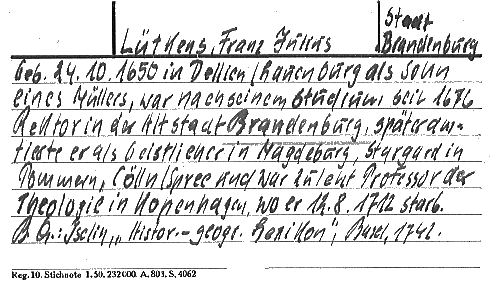 Lüthens, Franz Julius
Stadt
Brandenburg
Geb. 24.10.1650 in Dellien/Lauenburg als Sohn
eines Müllers, war nach seinem Studium seit 1676
Rektor in der Altstadt Brandenburg, später am-
tierte er als Geistlicher in Magdeburg, Stargard in
Pommern, Cölln/Spree und war zuletzt Professor der
Theologie in Kopenhagen, wo er 12.8.1712 starb.
B.Qu.: Iselin, „Histor.-geogr. Lexikon", Basel, 1742.
Reg. 10. Stichnote 1. 50. 232000. A. 803. S. 4062